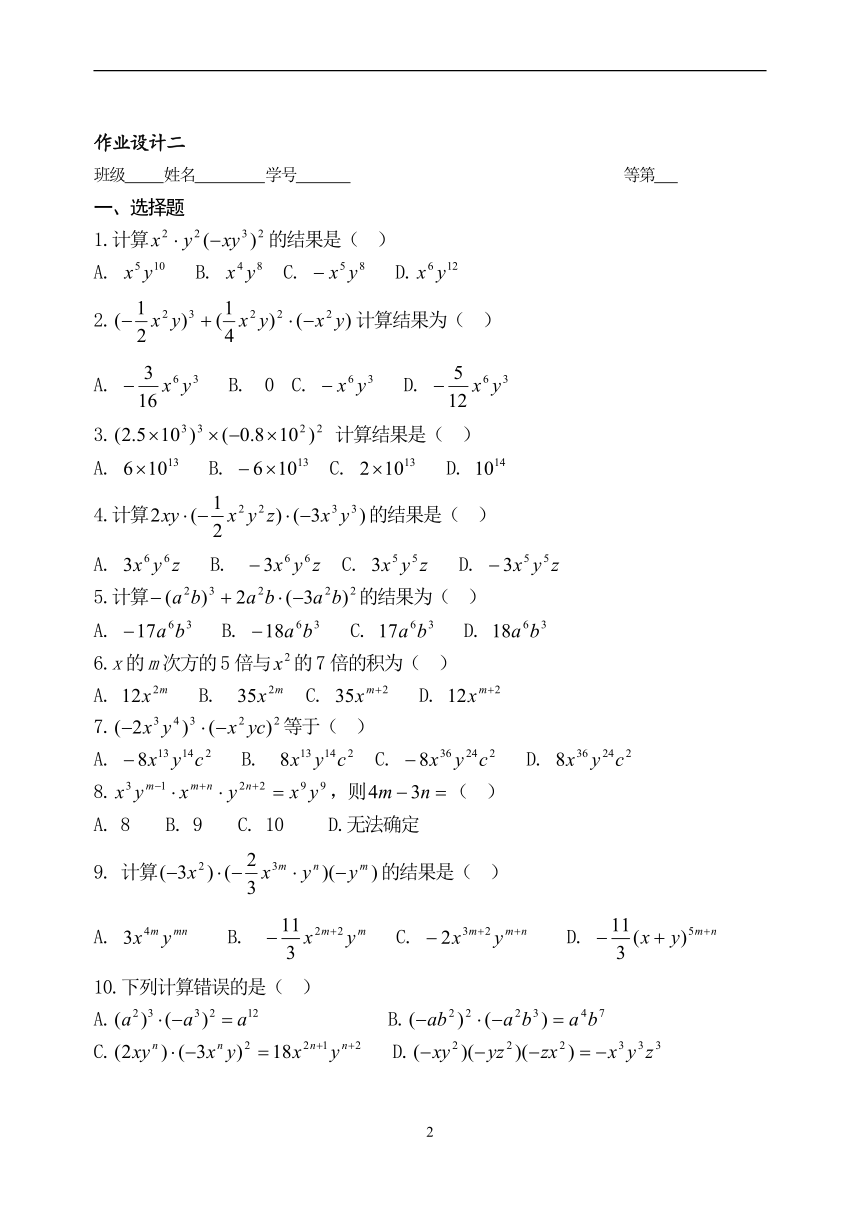 作业设计二
班级_____姓名_________学号_______ 等第___
一、选择题
1.计算x²·y²(−xy³)²的结果是（ ）
A. x⁵y¹⁰ B. x⁴y⁸ C. −x⁵y⁸ D. x⁶y¹²
2.(−1/2 x²y)³+(1/4 x²y)²·(−x²y)计算结果为（ ）
A. −3/16 x⁶y³ B. 0 C. −x⁶y³ D. −5/12 x⁶y³
3.(2.5×10³)³×(−0.8×10²)² 计算结果是（ ）
A. 6×10¹³ B. −6×10¹³ C. 2×10¹³ D. 10¹⁴
4.计算2xy·(−1/2 x²y²z)·(−3x³y³)的结果是（ ）
A. 3x⁶y⁶z B. −3x⁶y⁶z C. 3x⁵y⁵z D. −3x⁵y⁵z
5.计算−(a²b)³+2a²b·(−3a²b)²的结果为（ ）
A. −17a⁶b³ B. −18a⁶b³ C. 17a⁶b³ D. 18a⁶b³
6.x的m次方的5倍与x²的7倍的积为（ ）
A. 12x²ᵐ B. 35x²ᵐ C. 35xᵐ⁺² D. 12xᵐ⁺²
7.(−2x³y⁴)³·(−x²yc)²等于（ ）
A. −8x¹³y¹⁴c² B. 8x¹³y¹⁴c² C. −8x³⁶y²⁴c² D. 8x³⁶y²⁴c²
8.x³yᵐ⁻¹·xᵐ⁺ⁿ·y²ⁿ⁺²=x⁹y⁹，则4m−3n=（ ）
A. 8 B. 9 C. 10 D.无法确定
9. 计算(−3x²)·(−2/3 x³ᵐ·yⁿ)(−yᵐ)的结果是（ ）
A. 3x⁴ᵐyᵐⁿ B. −11/3 x²ᵐ⁺²yᵐ C. −2x³ᵐ⁺²yᵐ⁺ⁿ D. −11/3 (x+y)⁵ᵐ⁺ⁿ
10.下列计算错误的是（ ）
A.(a²)³·(−a³)²=a¹² B.(−ab²)²·(−a²b³)=a⁴b⁷
C.(2xyⁿ)·(−3xⁿy)²=18x²ⁿ⁺¹yⁿ⁺² D.(−xy²)(−yz²)(−zx²)=−x³y³z³
2